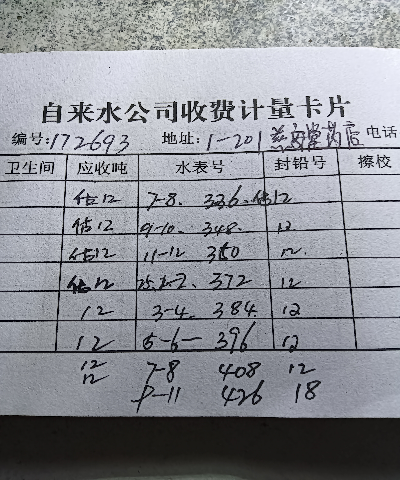 自来水公司收费计量卡片
编号:172693 地址:1-201 慈安堂药店 电话
卫生间 应收吨 水表号 封铅号 擦校
估12 7-8. 336. 估12
估12 9-10. 348. 12
估12 11-12 360 12.
估12 25.1-2. 372 12
12 3-4. 384. 12
12 5-6- 396 12
12 7-8 408 12
12 9-11 426 18